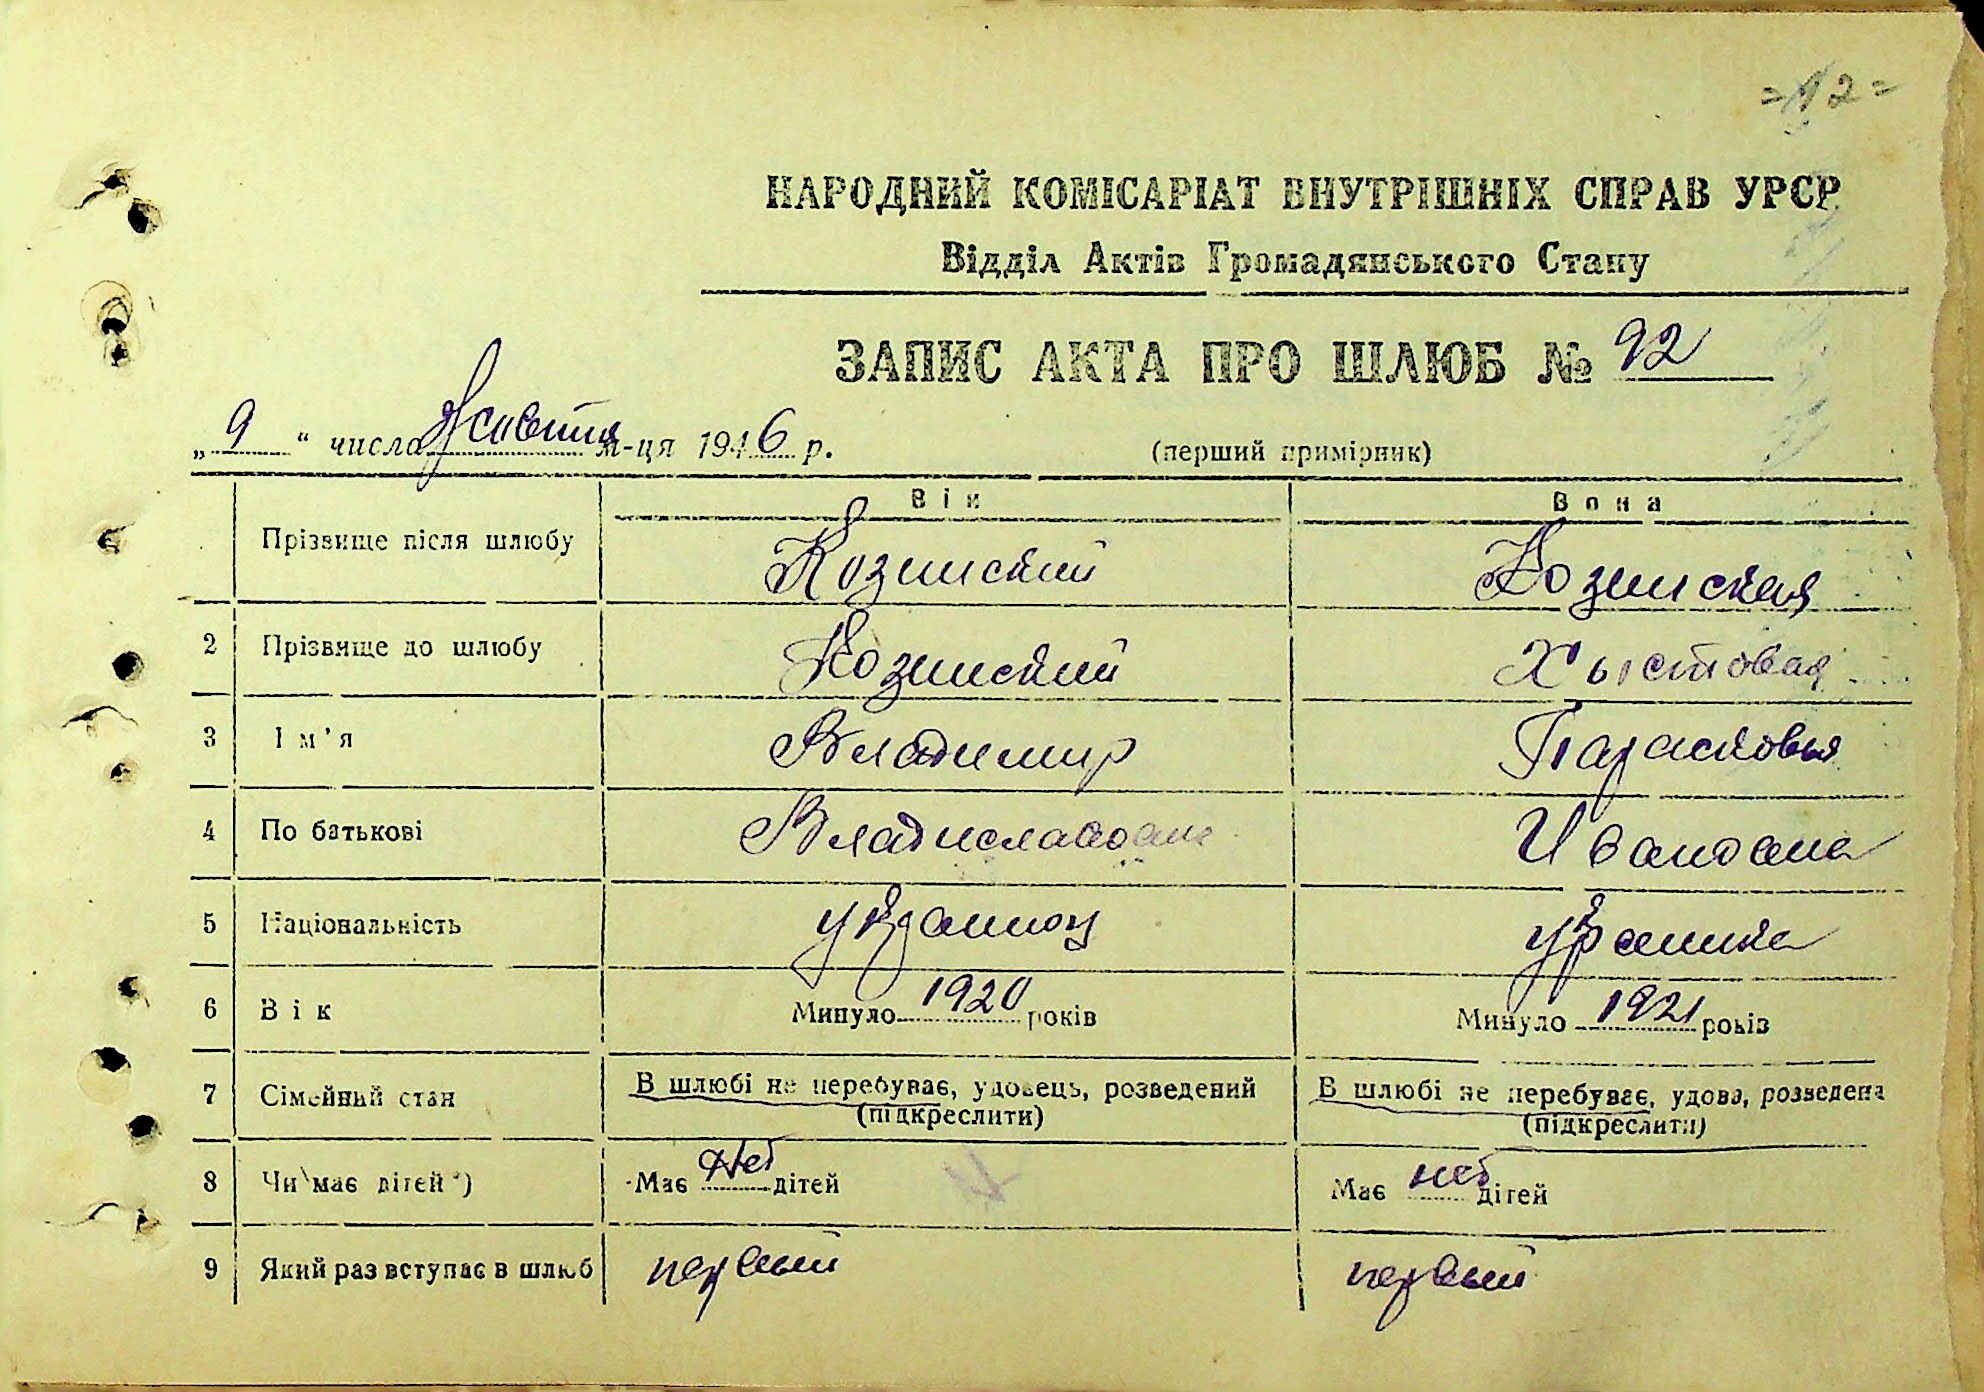 = 12 =
НАРОДНИЙ КОМІСАРІАТ ВНУТРІШНІХ СПРАВ УРСР
Відділ Актів Громадянського Стану
ЗАПИС АКТА ПРО ШЛЮБ № 92
„ 9 “ числа Жовтня м-ця 1946 р. (перший примірник)
Він Вона
Прізвище після шлюбу Козинский Козинская
2 Прізвище до шлюбу Козинский Хыстовая
3 Ім'я Владимир Парасковья
4 По батькові Владиславович Ивановна
5 Національність украинец украинка
6 Вік Минуло 1920 років Минуло 1921 років
7 Сімейний стан В шлюбі не перебуває, удовець, розведений (підкреслити) В шлюбі не перебуває, удова, розведена (підкреслити)
8 Чи має дітей *) Має Нет дітей Має нет дітей
9 Який раз вступає в шлюб первый первый